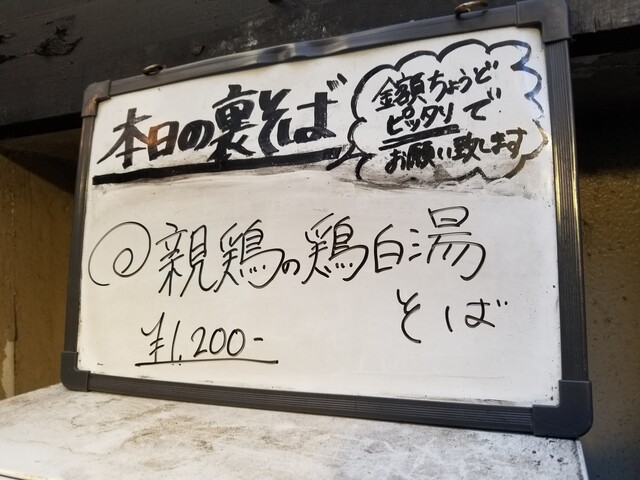 本日の裏そば
金額ちょうど
ピッタリで
お願い致します
親鶏の鶏白湯
そば
¥1,200-